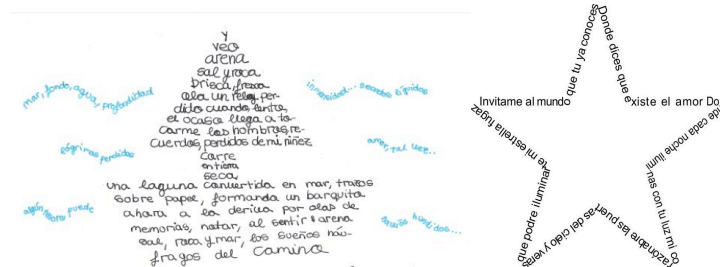 y
veo
arena
sal y roca
brisa, fresca
ola un reloj per
dido cuando lento,
el ocaso llega a to
carme los hombros, re
cuerdos, perdidos de mi niñez
carre
en tierra
seca,
una laguna convertida en mar, trazos
sobre papel, formando un barquito
ahora a la deriva por olas de
memorias, natar, al sentir arena
sal, roca y mar, los sueños náu-
fragos del camino
mar, fondo, agua, profundidad
lágrimas perdidas
algún tesoro puede
inmensidad... secretos
amor, tal vez..
hundidos...
Invitame al mundo
que tu ya conoces
Donde dices que e
xiste el amor Do
de cada noche ilumi
nas con tu luz mi co
razón abre las puert
as del cielo y veras
que podre iluminar
te mi estrella fugaz